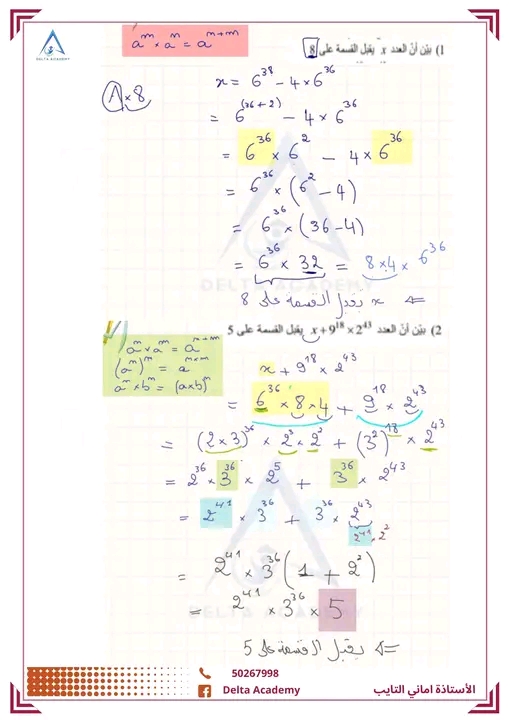 DELTA ACADEMY
a^m × a^n = a^(n+m)
1) بيّن أنّ العدد x يقبل القسمة على 8
x = 6^38 − 4 × 6^36
A × 8
= 6^(36+2) − 4 × 6^36
= 6^36 × 6^2 − 4 × 6^36
= 6^36 × (6^2 − 4)
= 6^36 × (36 − 4)
= 6^36 × 32 = 8 × 4 × 6^36
DELTA ACADEMY
⇐ x يقبل القسمة على 8
2) بيّن أنّ العدد x + 9^18 × 2^43 يقبل القسمة على 5
a^n × a^m = a^(n+m)
(a^m)^n = a^(n×m)
a^n × b^n = (a×b)^n
x + 9^18 × 2^43
= 6^36 × 8 × 4 + 9^18 × 2^43
= (2×3)^36 × 2^3 × 2^2 + (3^2)^18 × 2^43
= 2^36 × 3^36 × 2^5 + 3^36 × 2^43
= 2^41 × 3^36 + 3^36 × 2^43
2^41 · 2^2
= 2^41 × 3^36 (1 + 2^2)
= 2^41 × 3^36 × 5
DELTA ACADEMY
⇐ يقبل القسمة على 5
50267998
Delta Academy
الأستاذة اماني التايب